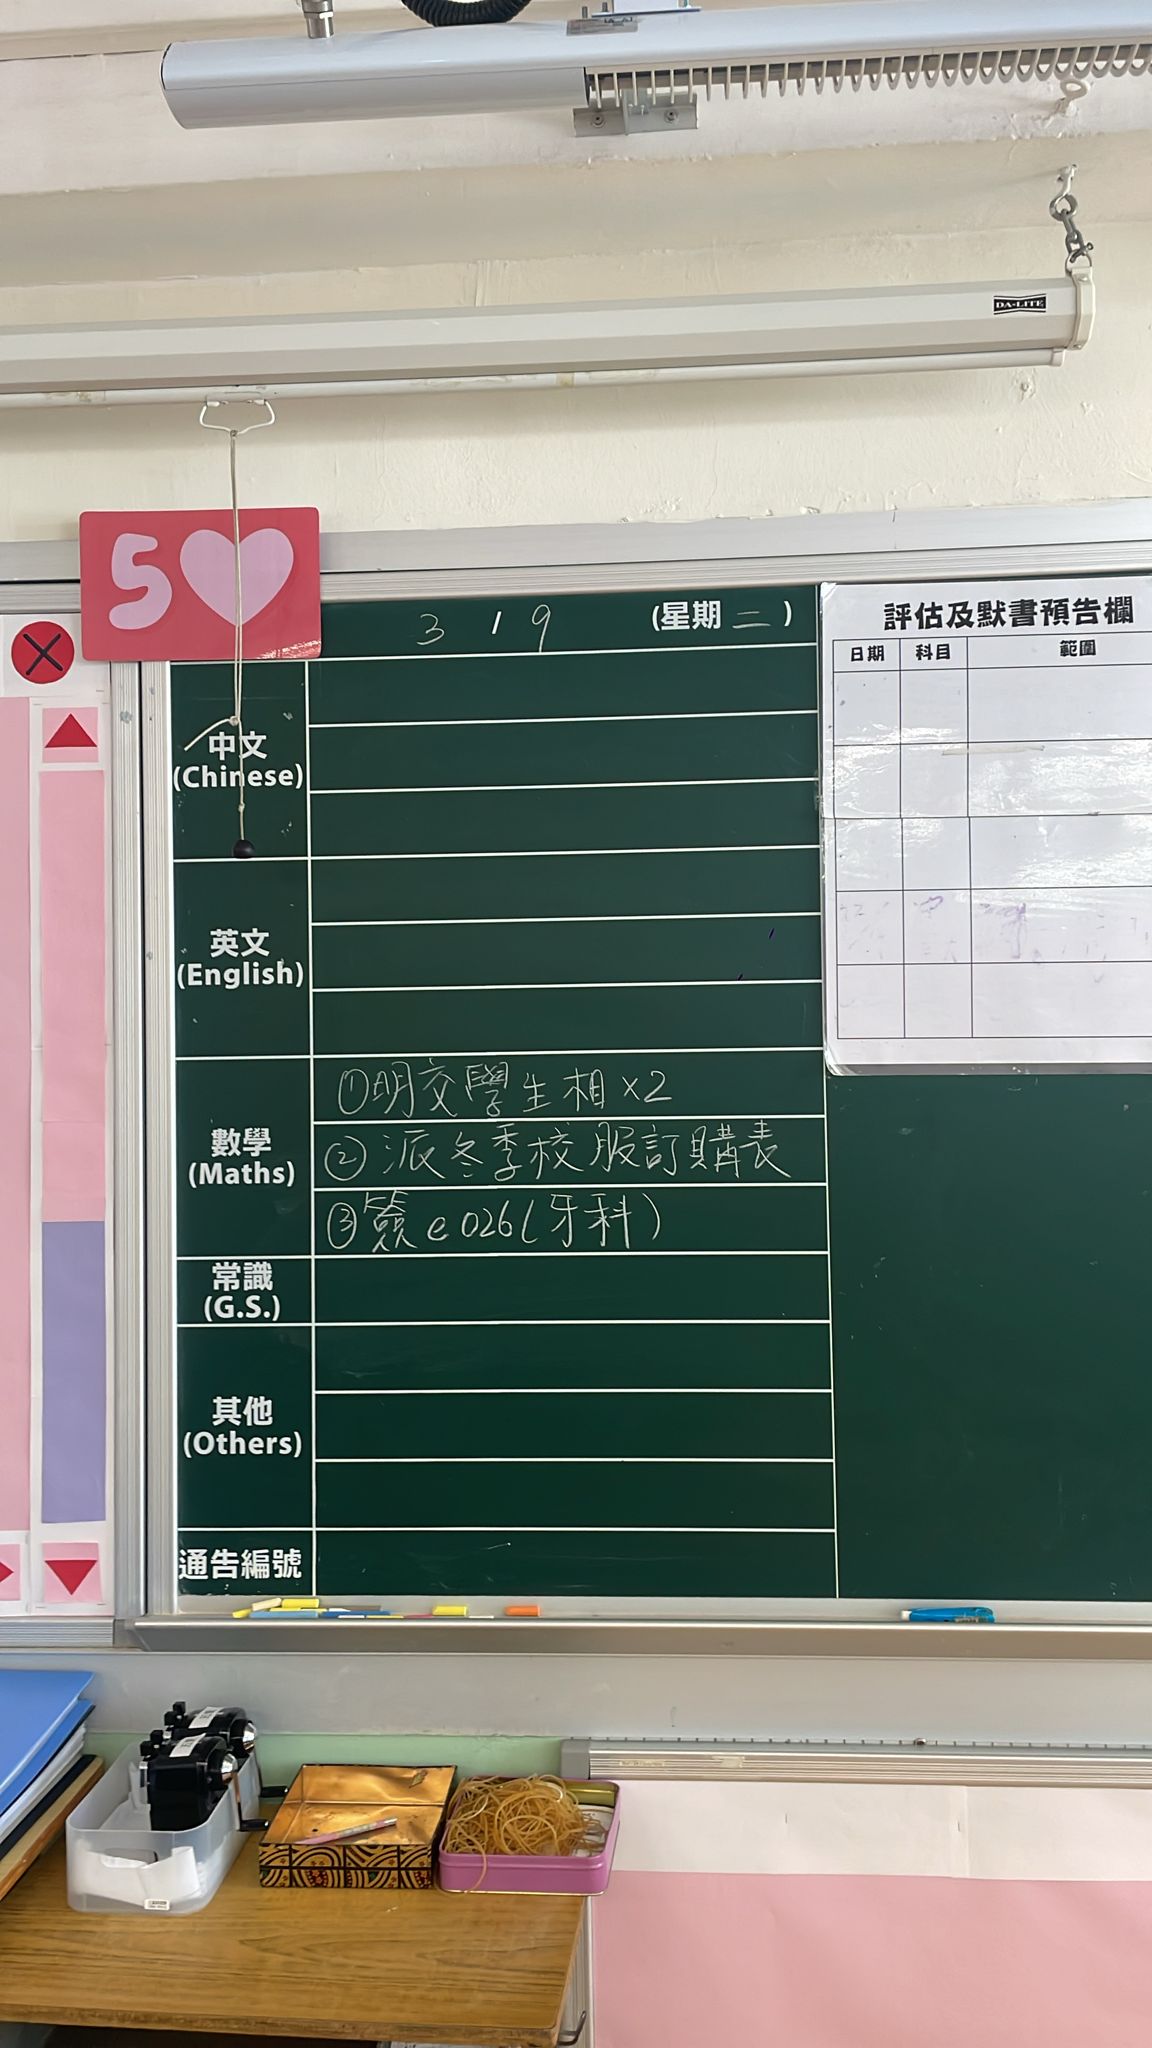 DA-LITE
5
3 / 9 (星期二)
評估及默書預告欄
日期 科目 範圍
中文
(Chinese)
英文
(English)
數學
(Maths)
①明交學生相x2
②派冬季校服訂購表
③簽e026(牙科)
常識
(G.S.)
其他
(Others)
通告編號